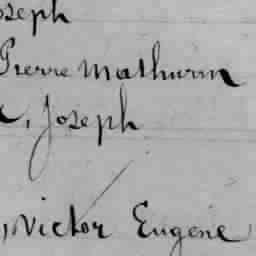 Joseph
Pierre Mathurin
, Joseph
, Victor Eugene